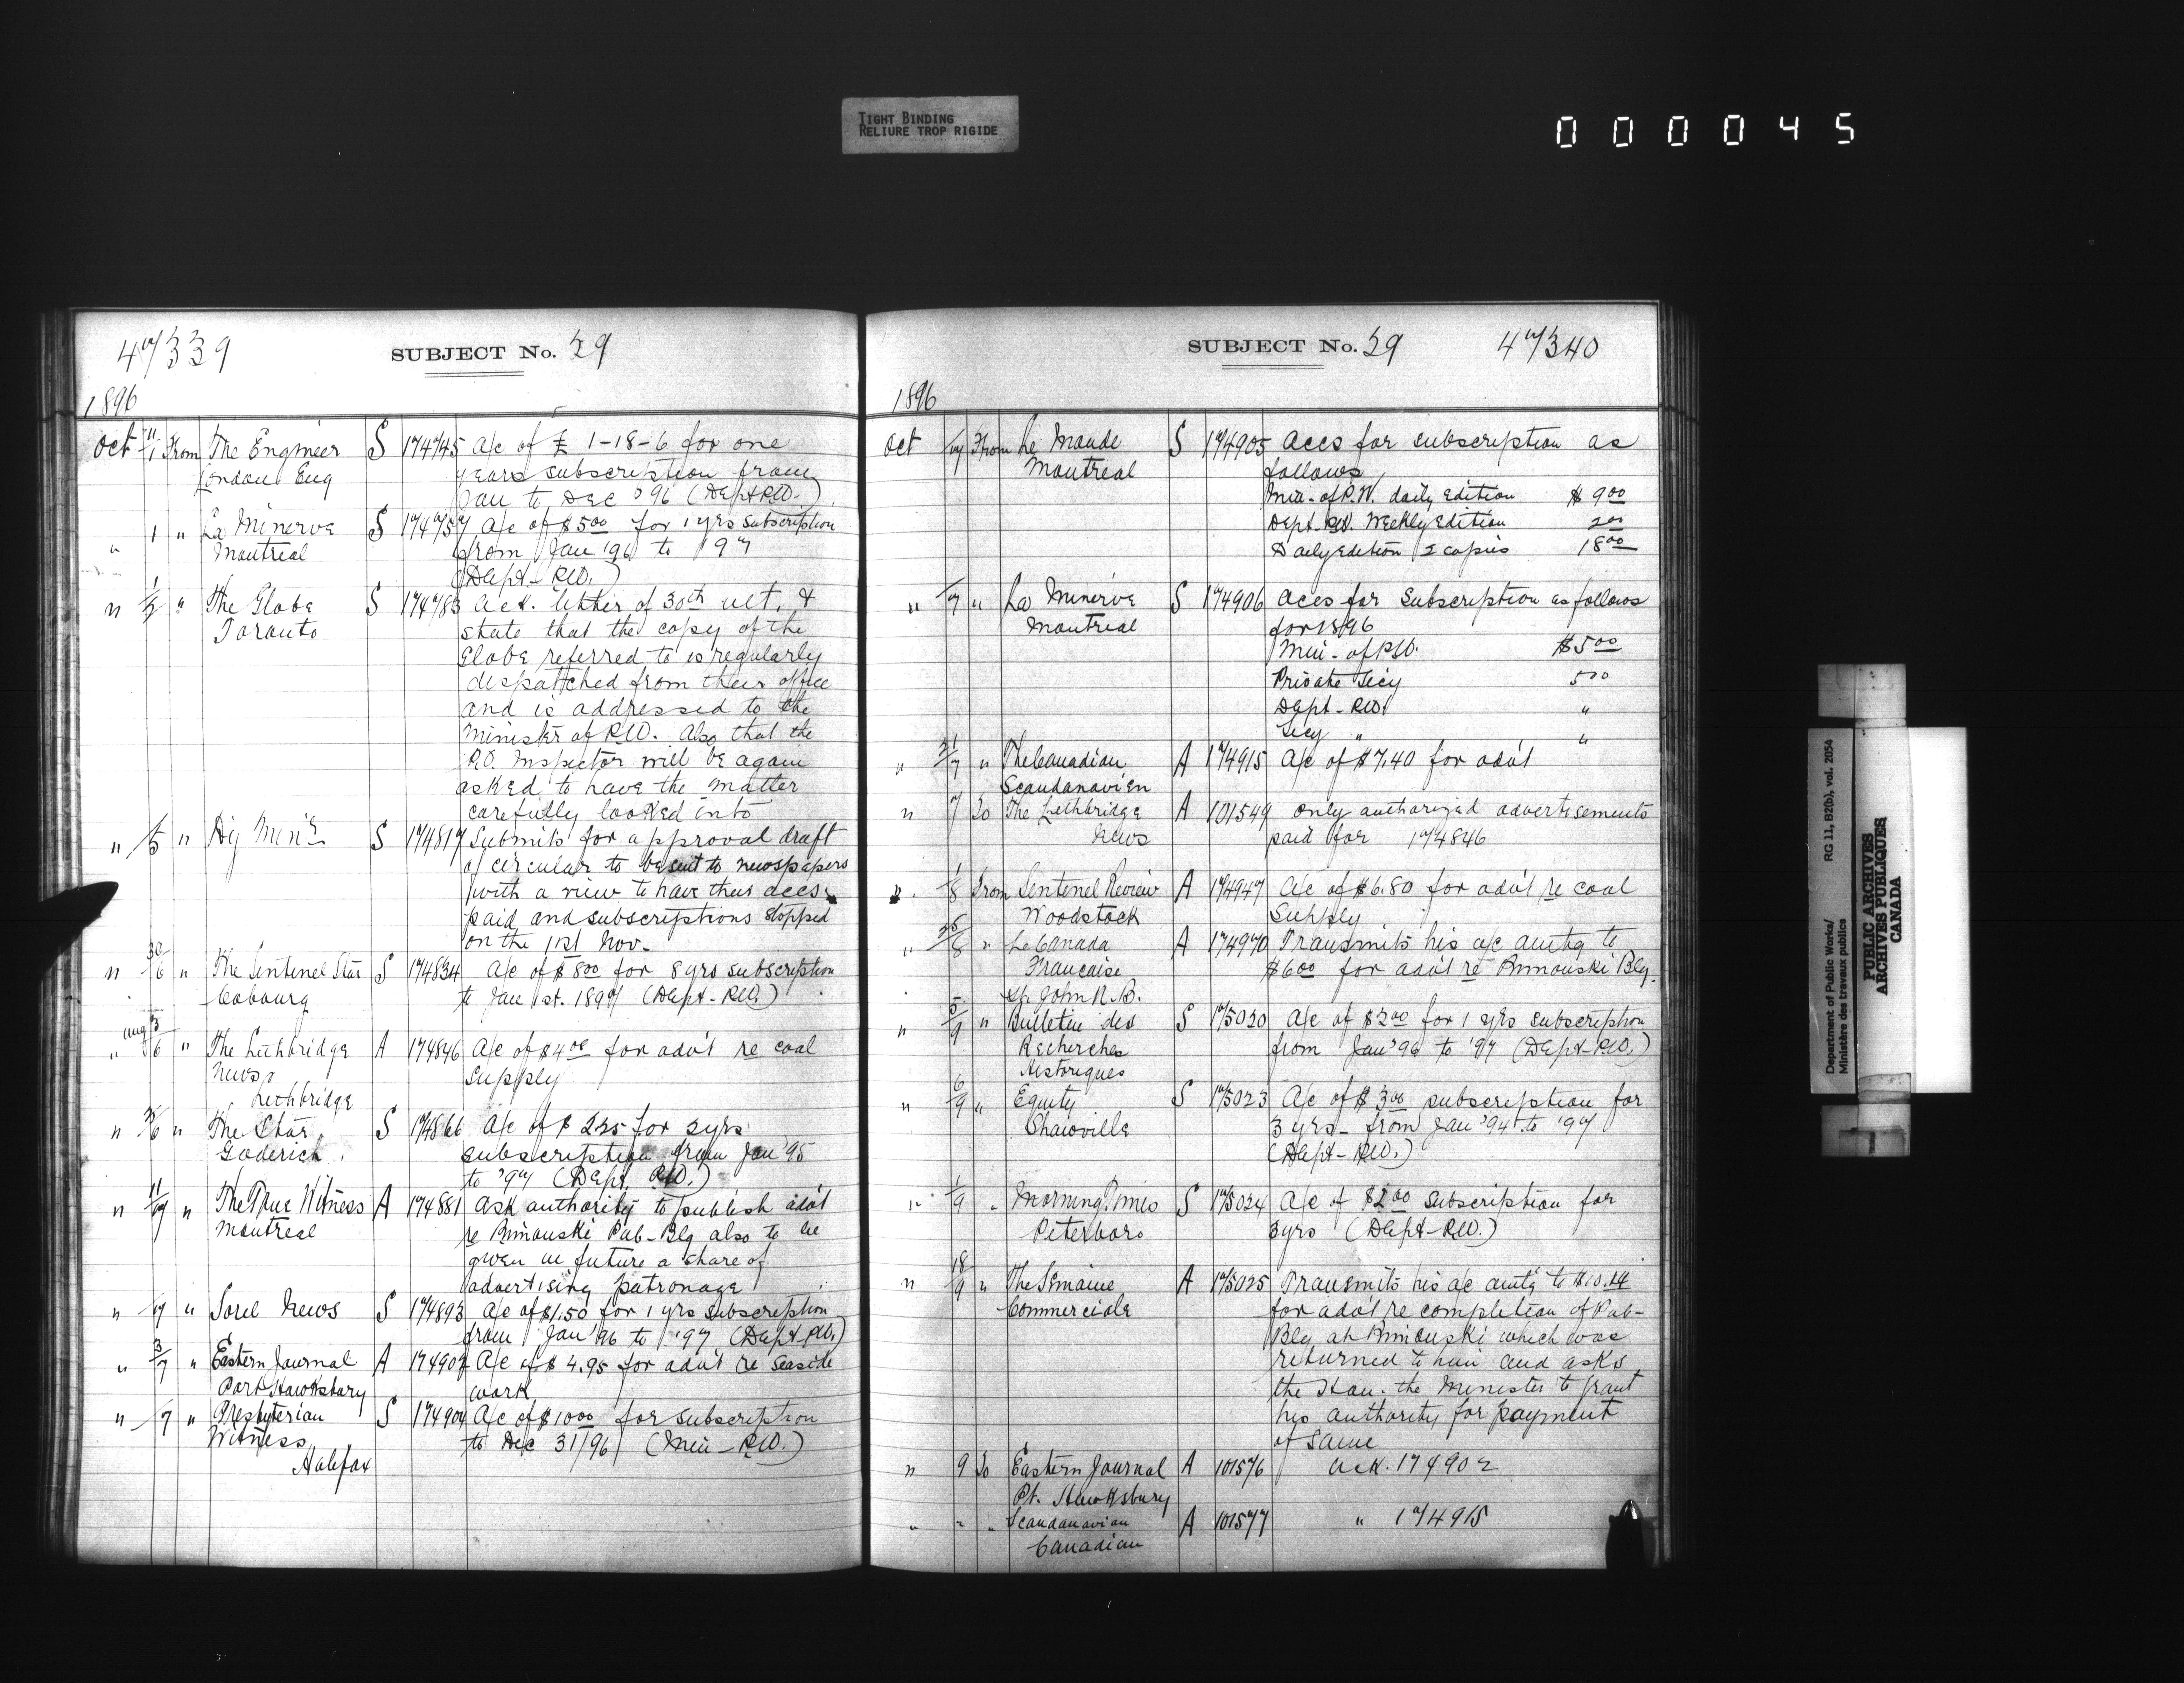 TIGHT BINDING
RELIURE TROP RIGIDE
000045
SUBJECT No. 29
1896
Oct 11/1 From The Engineer S 174745 A/c of £ 1-18-6 for one
London Eng years subscription from
Jan to Dec '96 (Dept P.W.)
" 1 " La Minerve S 174757 A/c of $5.00 for 1 yrs subscription
Montreal from Jan '96 to '97
(Dept - P.W.)
" 1/2 " The Globe S 174783 Ack. letter of 30th ult. &
Toronto state that the copy of the
Globe referred to is regularly
dispatched from their office
and is addressed to the
Minister of P.W. Also that the
P.O. Inspector will be again
asked to have the matter
carefully looked into
" /5 " S 174817 Submits for approval draft
of circular to be sent to newspapers
with a view to have their accs.
paid and subscriptions stopped
on the 1st Nov.
" 30/6 " The Sentinel Star S 174834 A/c of $8.00 for 8 yrs subscription
Cobourg to Jan 1st. 1897 (Dept - P.W.)
" Aug 3/6 " The Lethbridge A 174846 A/c of $4.00 for adv't re coal
News supply
Lethbridge
" /6 " The Star S 174866 A/c of $ 2.25 for 2 yrs
Goderich subscription from Jan '95
to '97 (Dept. P.W.)
" 11/ " The True Witness A 174881 Ask authority to publish adv't
Montreal re Rimouski Pub-Blg also to be
given in future a share of
advertising patronage
" /7 " Sorel News S 174893 A/c of $1.50 for 1 yrs subscription
from Jan '96 to '97 (Dept-P.W.)
" 3/7 " Eastern Journal A 174902 A/c of $ 4.95 for adv't re Seaside
Port Hawksbury work
" /7 " Presbyterian S 174904 A/c of $10.00 for subscription
Witness to Dec 31/96 (Min - P.W.)
Halifax
SUBJECT No. 29
1896
Oct /7 From Le Monde S 174905 Accs for subscription as
Montreal follows
Min. of P.W. daily edition $ 9.00
Dept. P.W. Weekly Edition 2.00
Daily Edition 2 copies 18.00
" /7 " La Minerve S 174906 Accs for Subscription as follows
Montreal for 1896
Min. of P.W. $5.00
Private Secy 5.00
Dept - P.W. "
Secy " "
" 21/7 " The Canadian A 174915 A/c of $7.40 for adv't
Scandanavien
" 7 To The Lethbridge A 101549 Only authorized advertisements
News paid for 174846
" 1/8 From Sentinel Review A 174947 A/c of $6.80 for adv't re coal
Woodstock Supply
" /8 " Le Canada A 174970 Transmits his a/c amtg to
Francaise $6.00 for adv't re Rimouski Blg.
St. John P.Q.
" 5/9 " Bulletin des S 175020 A/c of $2.00 for 1 yrs subscription
Recherches from Jan '96 to '97 (Dept-P.W.)
Historiques
" 6/9 " Equity S 175023 A/c of $ 3.00 subscription for
Shawville 3 yrs - from Jan '94 to '97
(Dept - P.W.)
" 1/9 " Morning Times S 175024 A/c of $2.00 subscription for
Peterboro 3 yrs (Dept-P.W.)
" 18/9 " The Semaine A 175025 Transmits his a/c amtg to $10.14
Commerciale for adv't re completion of Pub-
Blg at Rimouski which was
returned to him and asks
the Hon. the Minister to grant
his authority for payment
of same
" 9 To Eastern Journal A 101576 Ack. 174902
Pt. Hawksbury
" " " Scandanavian A 101577 " 174915
Canadian
Department of Public Works/
Ministère des travaux publics
RG 11, B2(b), vol. 2054
PUBLIC ARCHIVES
ARCHIVES PUBLIQUES
CANADA